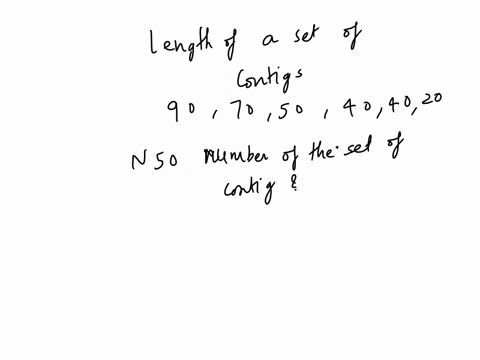 Length of a set of
Contigs
90, 70, 50, 40, 40, 20
N50 Number of the set of
contig